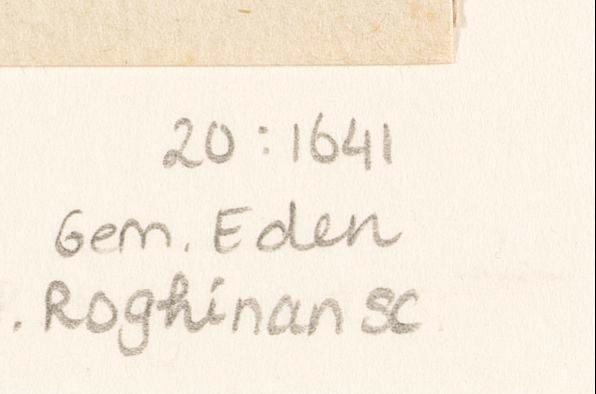 20:1641
Gem. Eden
. Roghinan sc